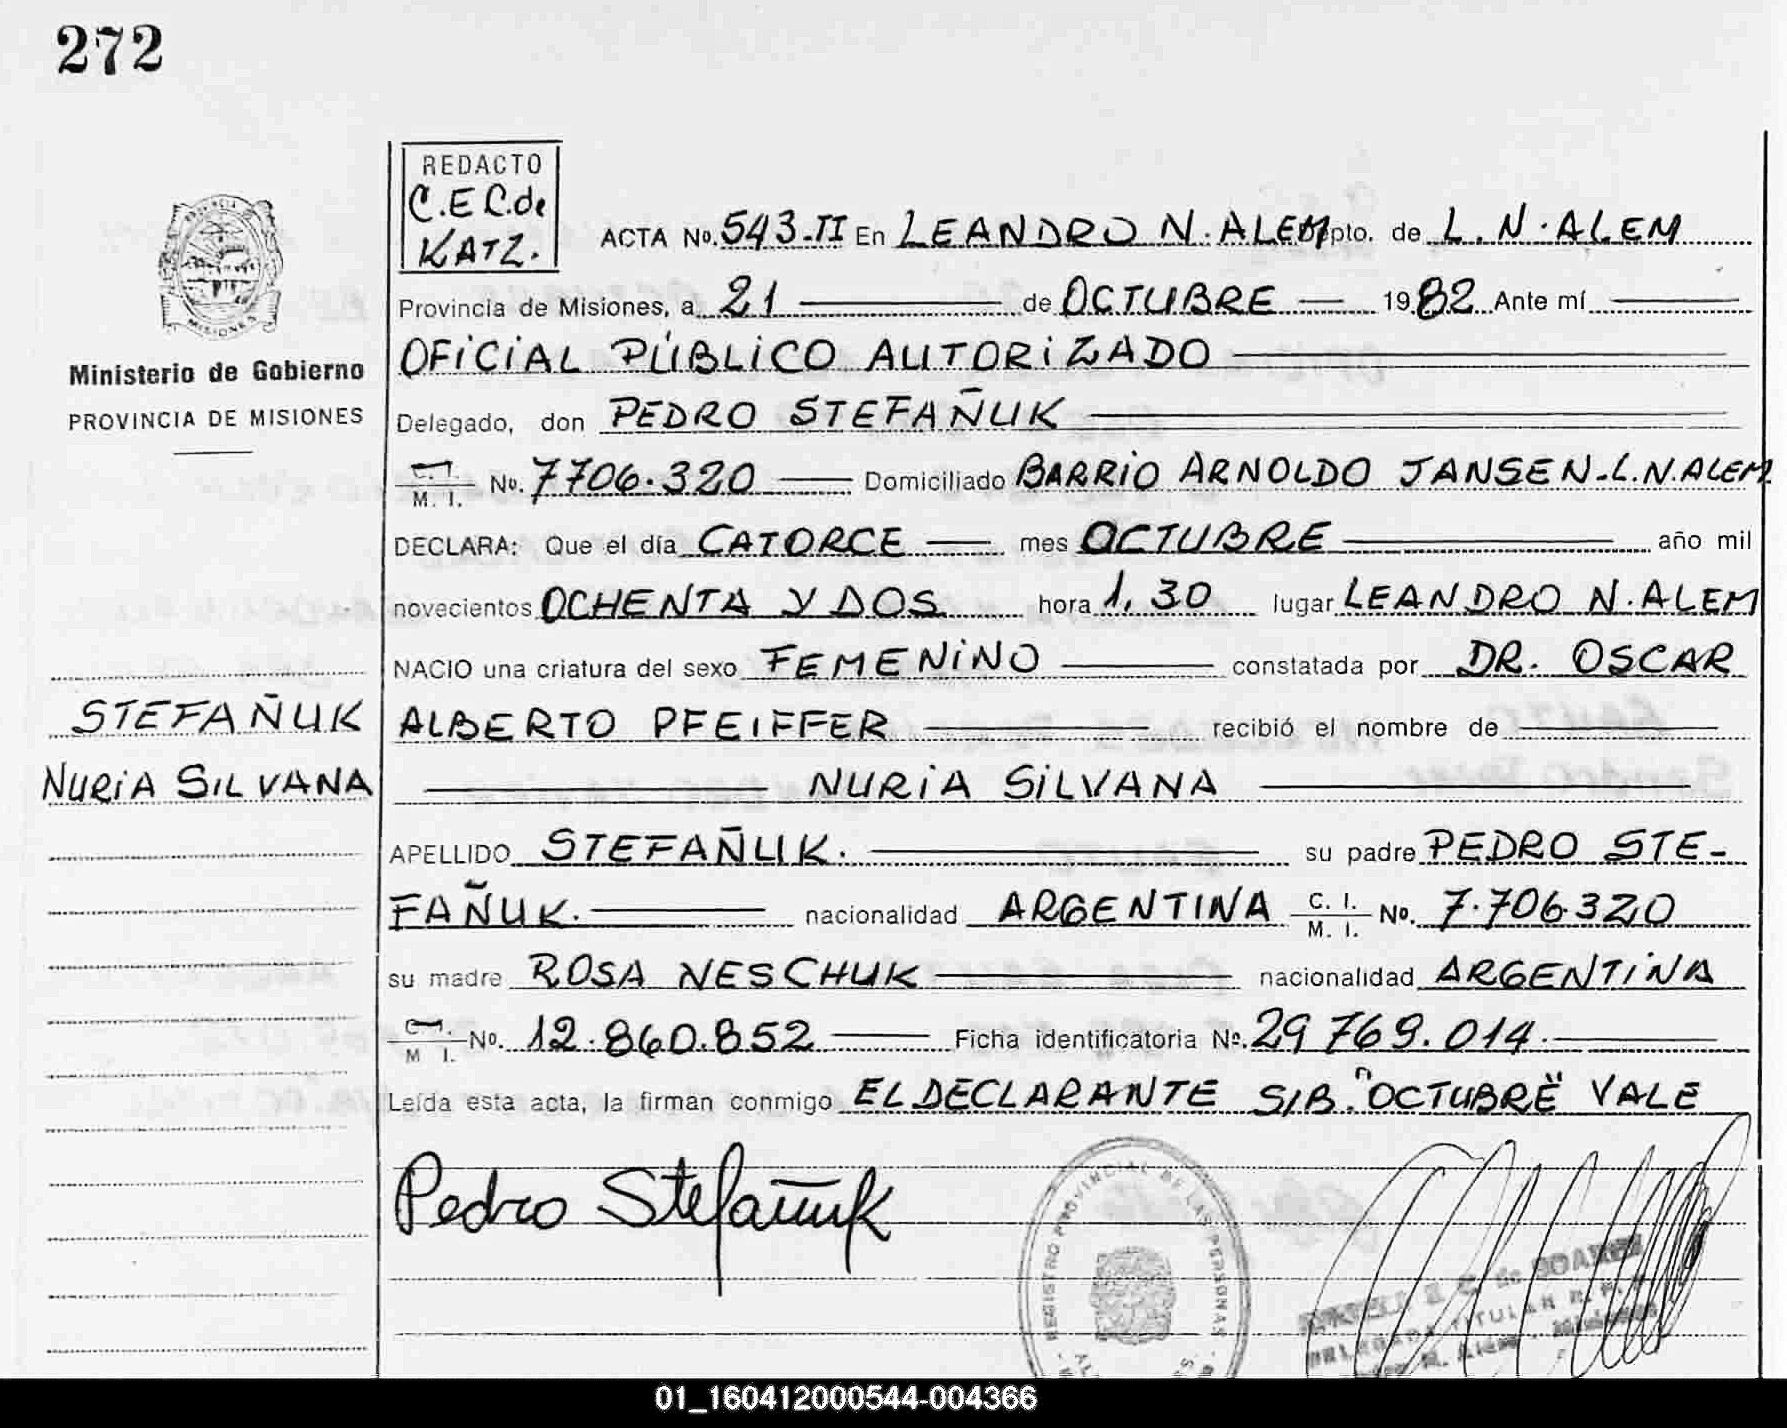 272
REDACTO
C.E C.de
KATZ.
PROVINCIA DE
MISIONES
Ministerio de Gobierno
PROVINCIA DE MISIONES
STEFAÑUK
NURIA SILVANA
ACTA No. 543-II En LEANDRO N. ALEM Dpto. de L. N. ALEM
Provincia de Misiones, a 21 de OCTUBRE 1982 Ante mí
OFICIAL PÚBLICO AUTORIZADO
Delegado, don PEDRO STEFAÑUK
M. I. No. 7706.320 Domiciliado BARRIO ARNOLDO JANSEN-L.N.ALEM.
DECLARA: Que el día CATORCE mes OCTUBRE año mil
novecientos OCHENTA Y DOS hora 1.30 lugar LEANDRO N. ALEM
NACIO una criatura del sexo FEMENINO constatada por DR. OSCAR
ALBERTO PFEIFFER recibió el nombre de
NURIA SILVANA
APELLIDO STEFAÑUK. su padre PEDRO STE-
FAÑUK. nacionalidad ARGENTINA C. I. M. I. No. 7.706.320
su madre ROSA NESCHUK nacionalidad ARGENTINA
M I. No. 12.860.852 Ficha identificatoria No. 29769.014.
Leída esta acta, la firman conmigo EL DECLARANTE S/B. "OCTUBRE" VALE
Pedro Stefañuk
REGISTRO PROVINCIAL DE LAS PERSONAS
de SOAREZ
TITULAR
N. Alem - Misiones
01_160412000544-004366